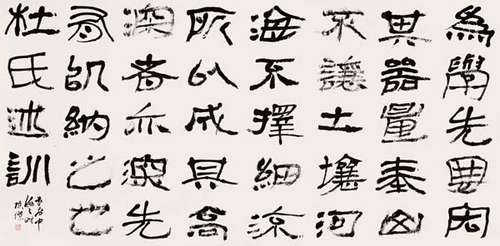 為學先
其器量泰山
不讓土壤河
海不擇細流
所以成其高
深者亦先
有納之也
杜氏述訓